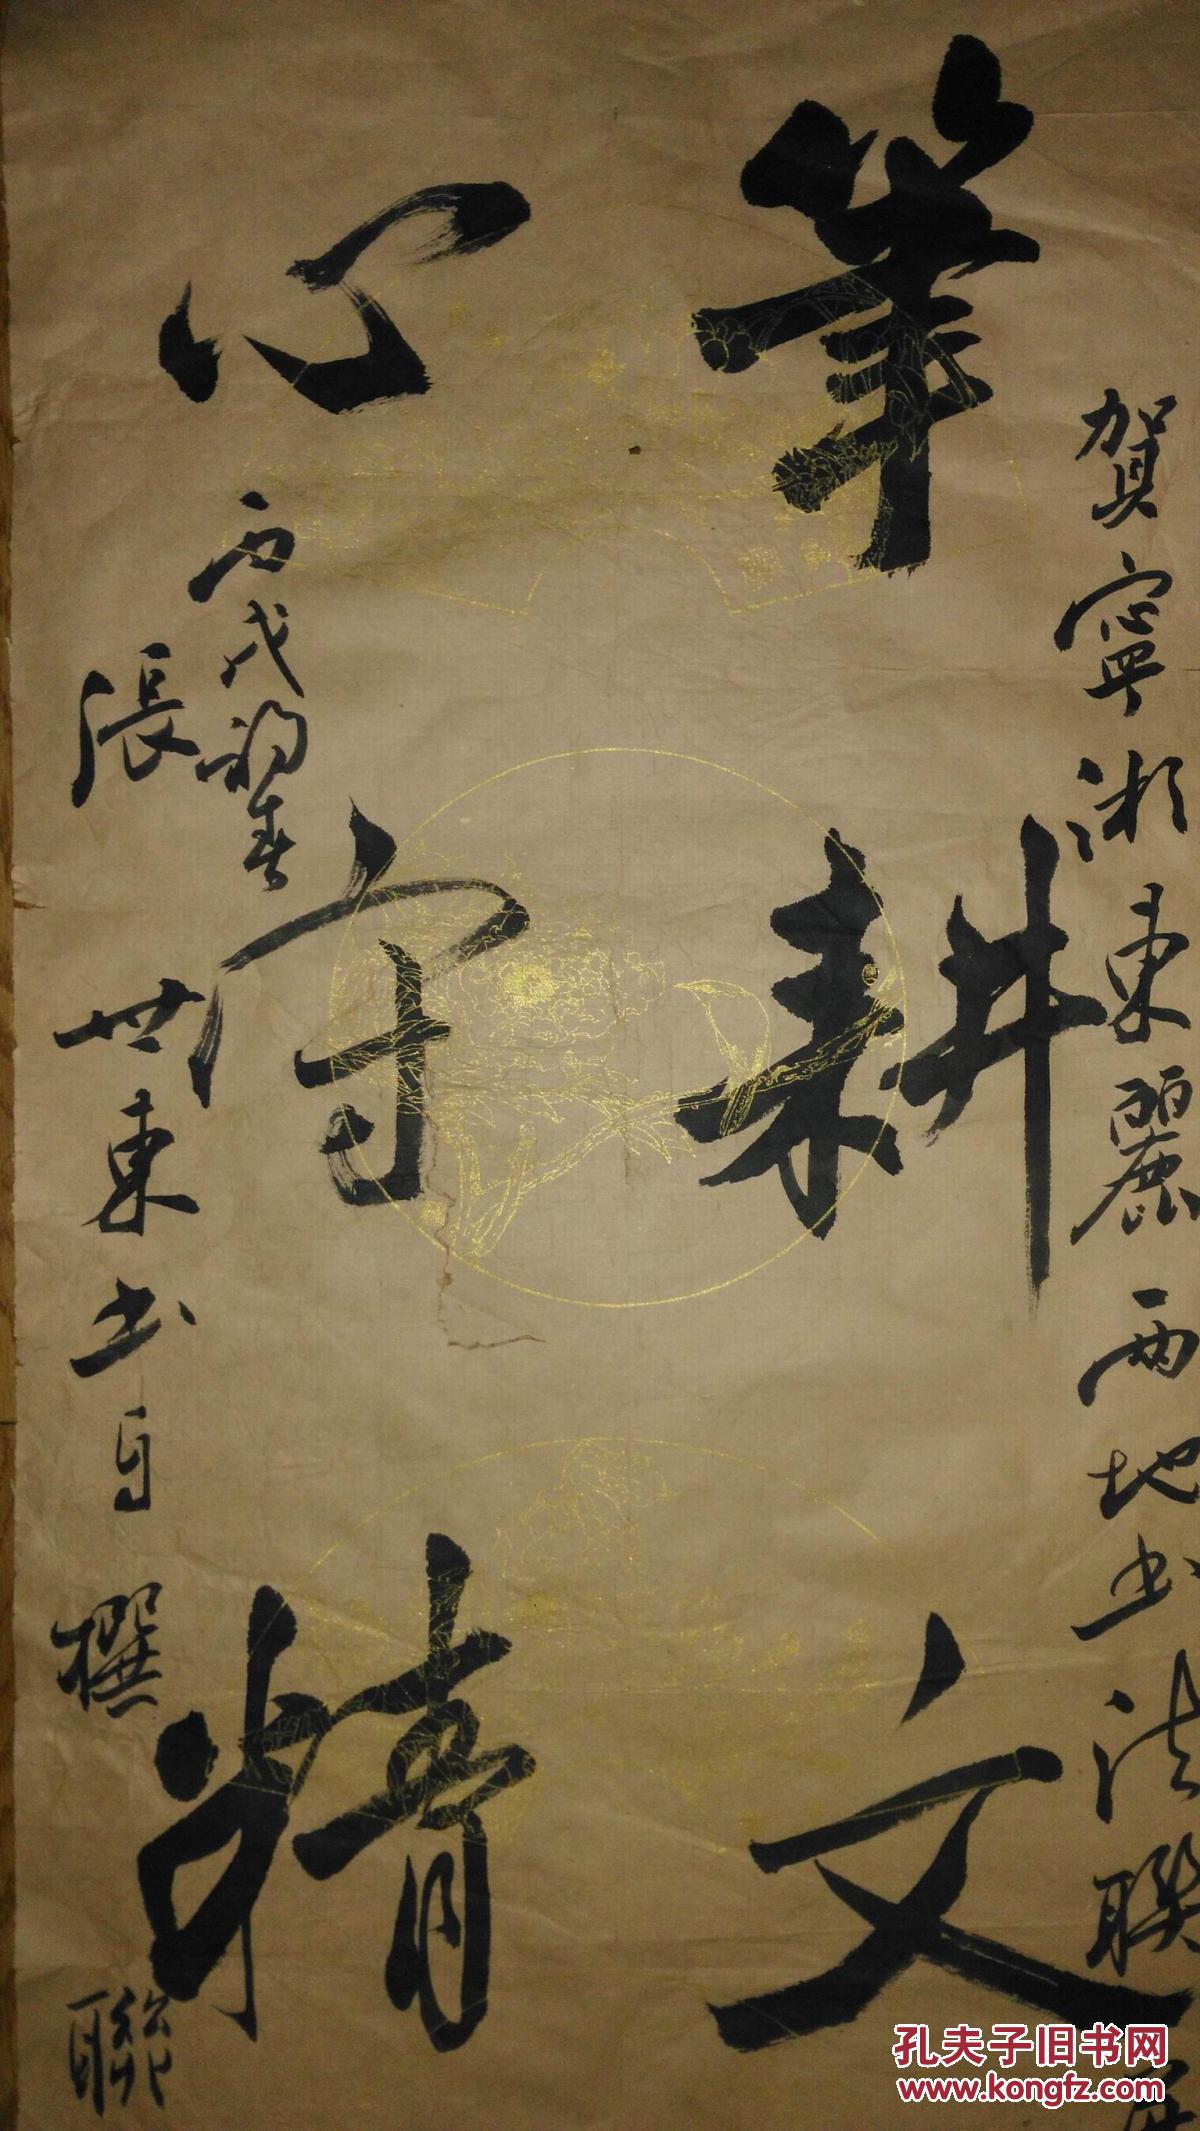 賀寧湘東麗兩地书法聯展
筆耕文
心守精
丙戌初春
張世東书自撰聯
孔夫子旧书网
www.kongfz.com